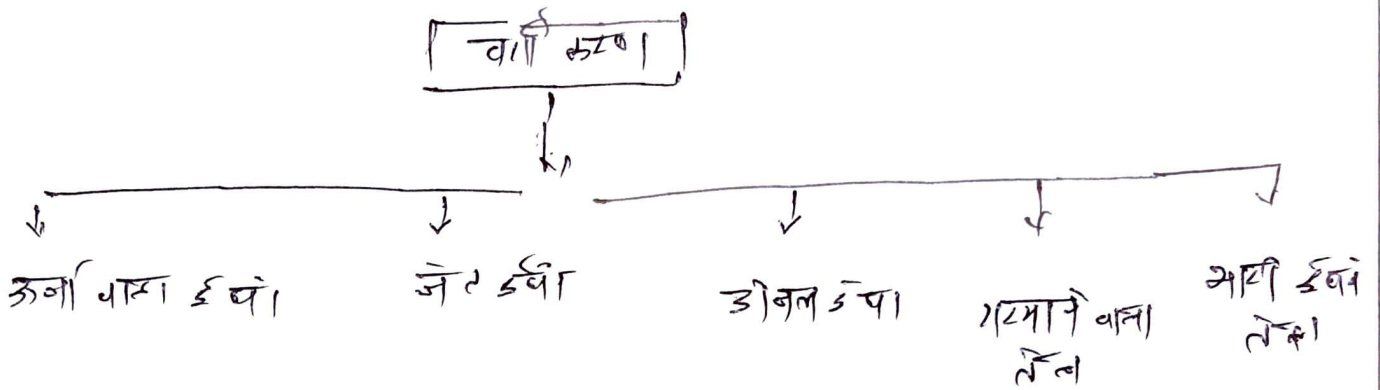 वर्गीकरण
ऊर्जा वाला ईधं।
जेट ईधं।
डीजल ईधं।
गरमाने वाला
तेल
भारी ईधंन
तेल